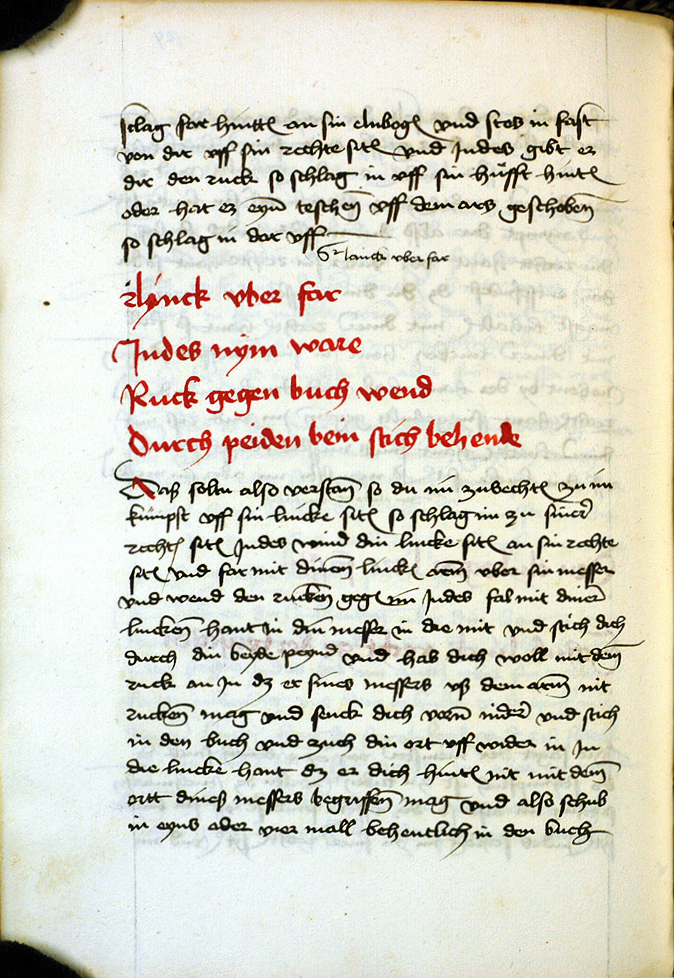 schlag fort hintten an sin elnbogen vnd stos in fast
von dir vff sin rechte siten vnd Jndes gibt er
dir den ruck so schlag in vff sin hüfft hinten
oder hat er eyn teschen vff dem ars geschoben
so schlag in dar vff
Linck vber far
Linck vber far
Jndes nym ware
Ruck gegen buch wend
Durch peiden bein stich behende
Das soltu also versten so du im zuvechten zu im
kümpst vff sin lincke siten so schlag im zu siner
rechten siten Jndes wind din lincke siten an sin rechte
siten vnd far mit dinem lincken arm vber sin messer
vnd wend den rucken gegen im Jndes fal mit diner
lincken hant in din messer in die mit vnd stich dich
durch din beyde peynd vnd hab dich woll mit dem
ruck an Jn dz er sines messers vß dem arm nit
rucken mag vnd senck dich vorn nider vnd stich
in den buch vnd zuch din ort vff wider in Jn
die lincke hant dz er dich hinten nit mit dem
ortt dines messers begriffen mag vnd also schub
in eyns oder vier mall behentlich in den buch